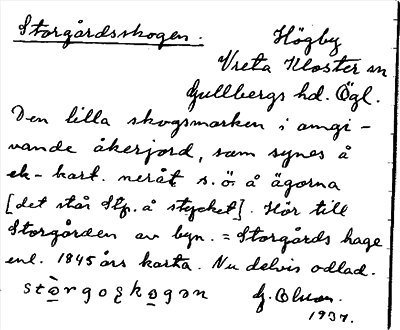 Storgårdsskogen. Högby
Vreta Kloster sn
Gullbergs hd. Ögl.
Den lilla skogsmarken i omgi-
vande åkerjord, som synes å
ek-kart. neråt s.ö. å ägorna
[det står Stg. å stycket]. Hör till
Storgården av byn. = Storgårds hage
enl. 1845 års karta. Nu delvis odlad.
stòrgoskogən
1937.